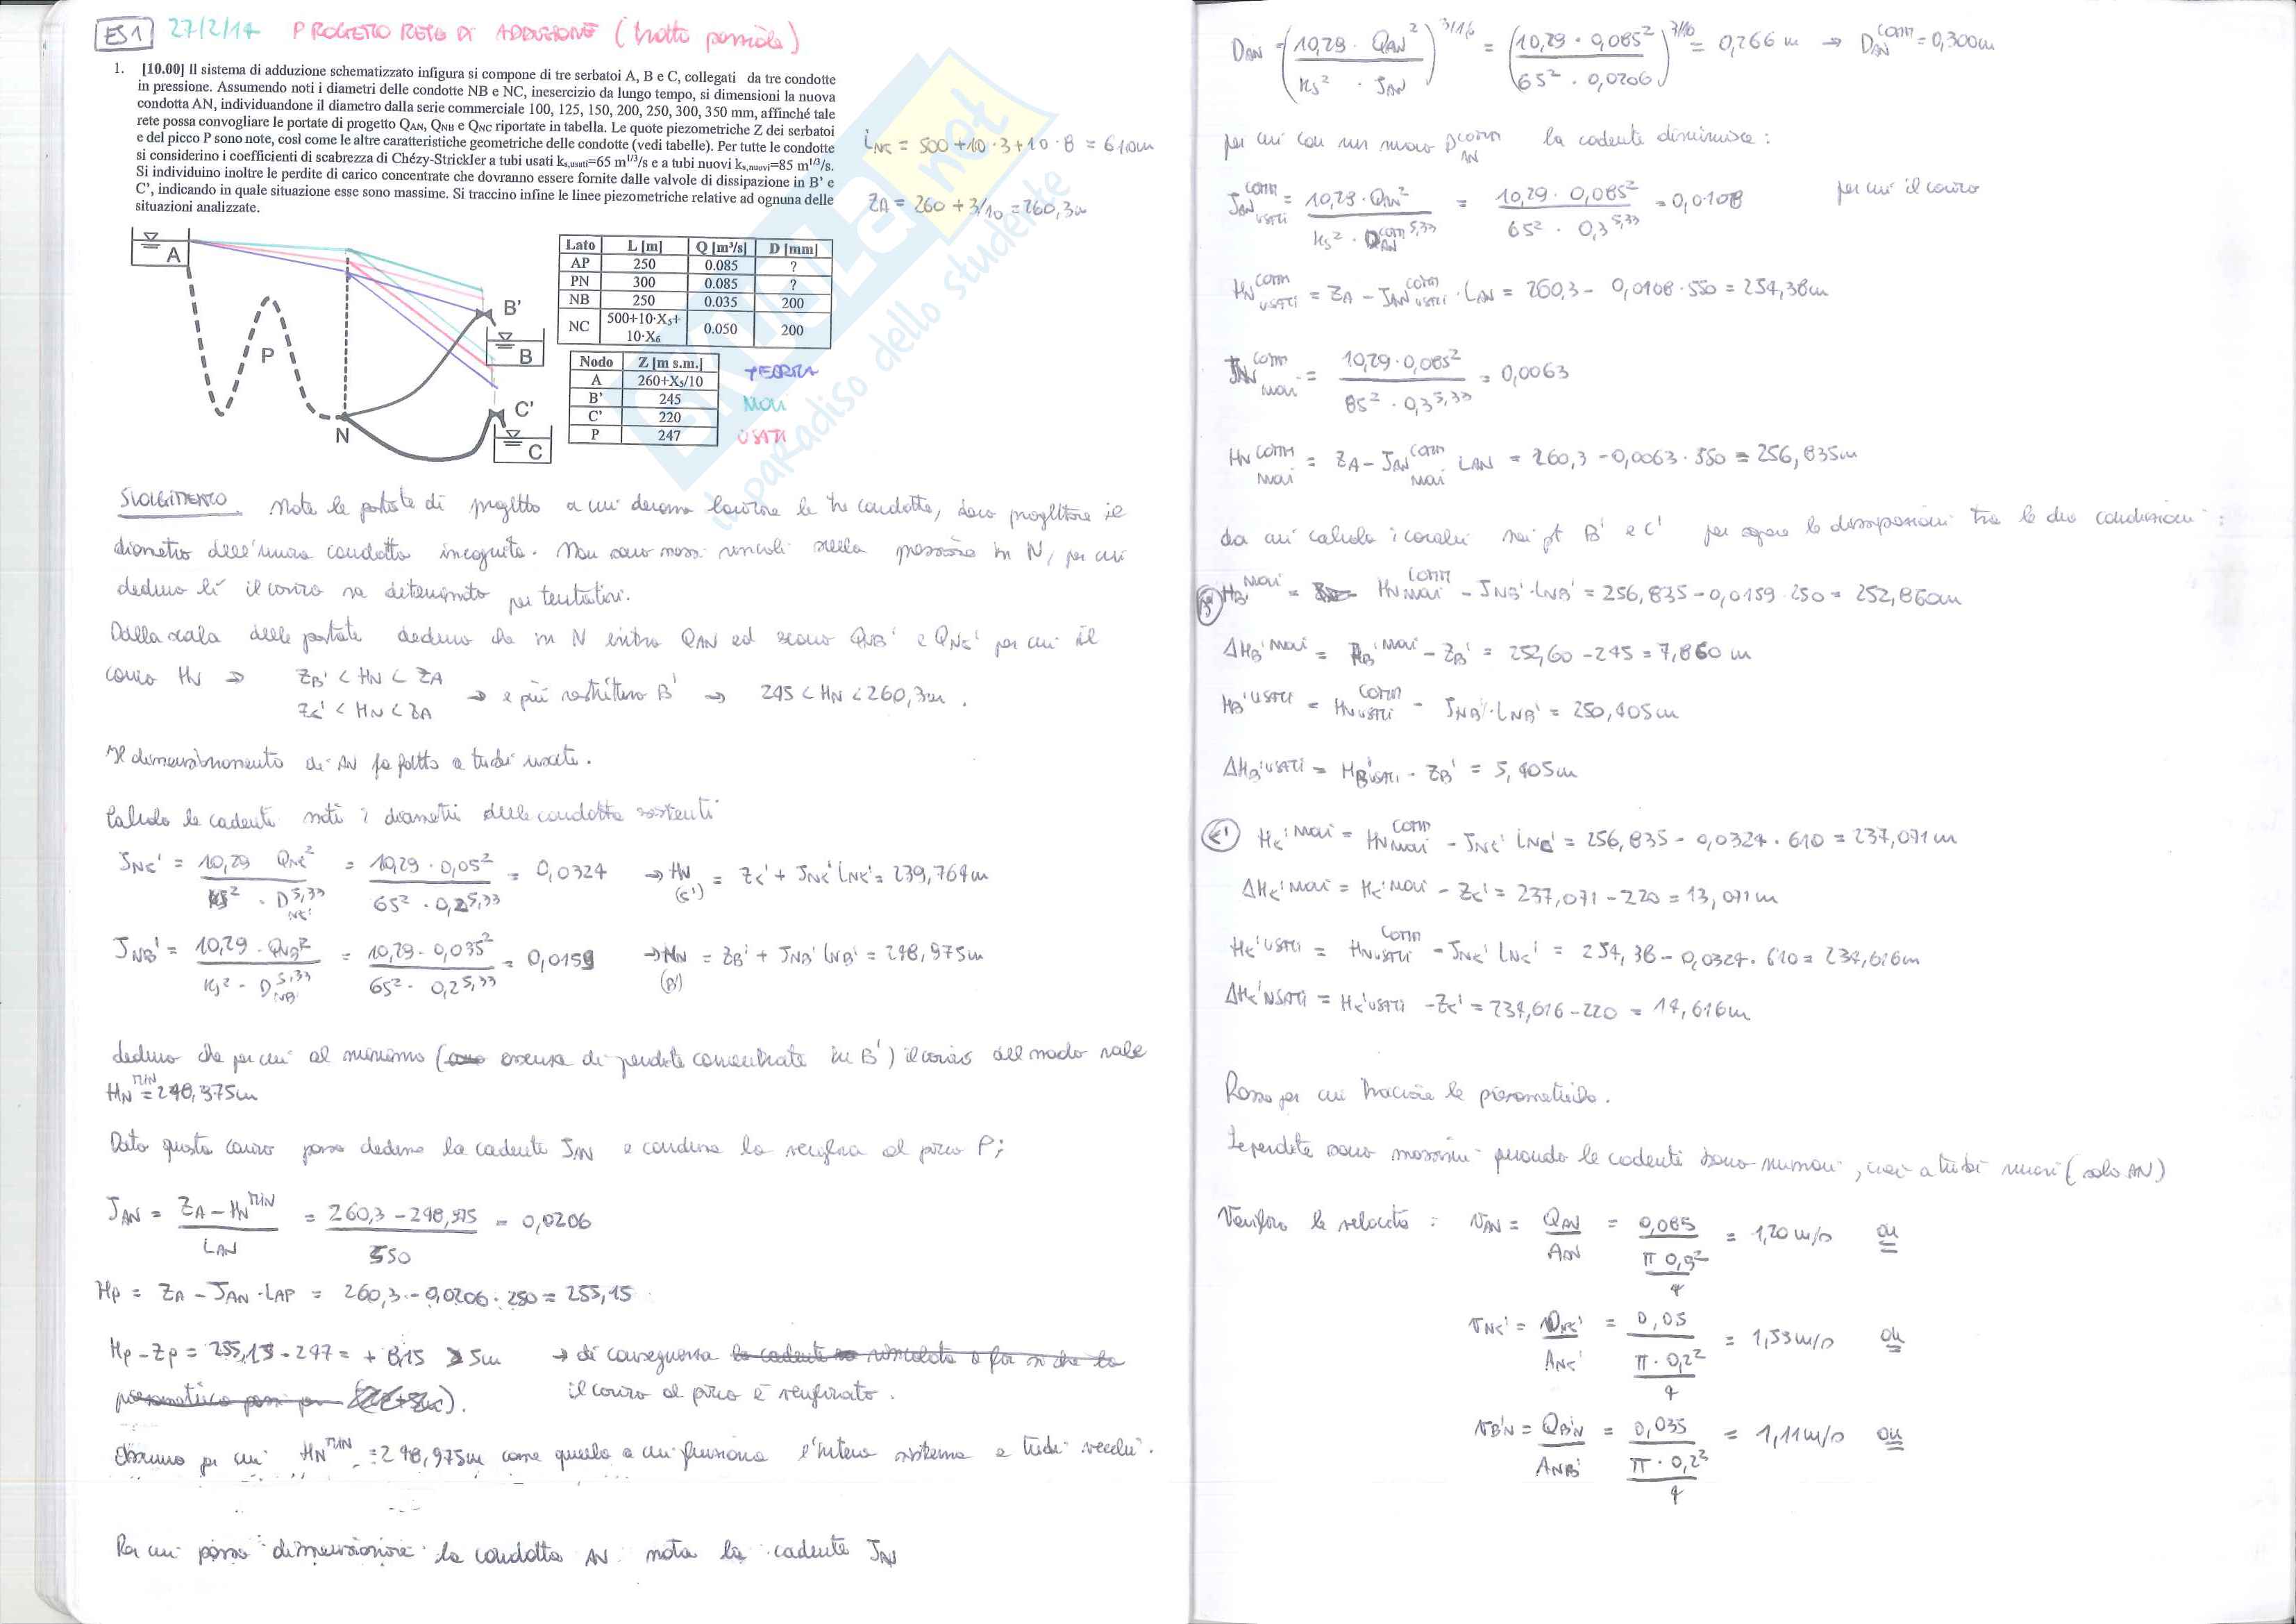 ES1 27/2/17 PROGETTO RETE DI ADDUZIONE (tratto porzione)
1. [10.00] Il sistema di adduzione schematizzato infigura si compone di tre serbatoi A, B e C, collegati da tre condotte
in pressione. Assumendo noti i diametri delle condotte NB e NC, inesercizio da lungo tempo, si dimensioni la nuova
condotta AN, individuandone il diametro dalla serie commerciale 100, 125, 150, 200, 250, 300, 350 mm, affinché tale
rete possa convogliare le portate di progetto QAN, QNB e QNC riportate in tabella. Le quote piezometriche Z dei serbatoi
e del picco P sono note, così come le altre caratteristiche geometriche delle condotte (vedi tabelle). Per tutte le condotte
si considerino i coefficienti di scabrezza di Chézy-Strickler a tubi usati ks,usati=65 m1/3/s e a tubi nuovi ks,nuovi=85 m1/3/s.
Si individuino inoltre le perdite di carico concentrate che dovranno essere fornite dalle valvole di dissipazione in B' e
C', indicando in quale situazione esse sono massime. Si traccino infine le linee piezometriche relative ad ognuna delle
situazioni analizzate.
LNC = 500 + 10·3 + 10·8 = 610m
ZA = 260 + 3/10 = 260,3m
A
P
N
B'
B
C'
C
Lato L [m] Q [m³/s] D [mm]
AP 250 0.085 ?
PN 300 0.085 ?
NB 250 0.035 200
NC 500+10·X5+10·X6 0.050 200
Nodo Z [m s.m.]
A 260+X5/10
B' 245
C' 220
P 247
TEORIA
NUOVI
USATI
SVOLGIMENTO. Note le portate di progetto a cui devono lavorare le tre condotte, devo progettare il
diametro dell'unica condotta incognita. Non sono messi vincoli sulla pressione in N, per cui
deduco il carico va determinato per tentativi.
Dalla scala delle portate deduco che in N entra QAN ed escono QNB' e QNC' per cui il
carico HN → ZB' < HN < ZA
ZC' < HN < ZA → è più restrittivo B' → 245 < HN < 260,3m.
Il dimensionamento di AN fa fatto a tubi usati.
Calcolo le cadenti noti i diametri delle condotte esistenti
JNC' = 10,29 QNC²/(ks² · DNC'^5,33) = 10,29 · 0,05²/(65² · 0,2^5,33) = 0,0324 → HN (C') = ZC' + JNC' LNC' = 239,764m
JNB' = 10,29 · QNB²/(ks² · DNB^5,33) = 10,29 · 0,035²/(65² · 0,2^5,33) = 0,0159 → HN (B') = ZB' + JNB' LNB' = 248,975m
deduco che per cui al minimo (assenza di perdite concentrate in B') il carico del nodo vale
HN^MIN = 248,975m
Dato questo carico posso dedurre la cadente JAN e condurre la verifica al picco P;
JAN = (ZA - HN^MIN)/LAN = (260,3 - 248,975)/550 = 0,0206
HP = ZA - JAN · LAP = 260,3 - 0,0206 · 250 = 255,15
HP - ZP = 255,15 - 247 = + 8,15 > 5m → di conseguenza
il carico al picco è verificato.
Assumo per cui HN^MIN = 248,975m come quello a cui funziona l'intero sistema a tubi vecchi.
Per cui posso dimensionare la condotta AN nota la cadente JAN
DAN = (10,29 · QAN²/(ks² · JAN))^3/16 = (10,29 · 0,085²/(65² · 0,0206))^3/16 = 0,266 m → DAN^COMM = 0,300m
per cui con un nuovo DAN^COMM la cadente diminuisce:
JAN USATI^COMM = 10,29 · QAN²/(ks² · DAN^COMM 5,33) = 10,29 · 0,085²/(65² · 0,3^5,33) = 0,0108 per cui il carico
HN USATI^COMM = ZA - JAN USATI^COMM · LAN = 260,3 - 0,0108 · 550 = 254,38m
JAN NUOVI^COMM = 10,29 · 0,085²/(85² · 0,3^5,33) = 0,0063
HN NUOVI^COMM = ZA - JAN NUOVI^COMM LAN = 260,3 - 0,0063 · 550 = 256,835m
da cui calcolo i carichi nei pt B' e C' per sapere le dissipazioni tra le due condizioni:
(B') HB'^NUOVI = HN NUOVI^COMM - JNB' · LNB' = 256,835 - 0,0159 · 250 = 252,860m
ΔHB'^NUOVI = HB'^NUOVI - ZB' = 252,60 - 245 = 7,860 m
HB'^USATI = HN USATI^COMM - JNB' · LNB' = 250,405m
ΔHB'^USATI = HB'USATI - ZB' = 5,405m
(C') HC'^NUOVI = HN NUOVI^COMM - JNC' LNC' = 256,835 - 0,0324 · 610 = 237,071m
ΔHC'^NUOVI = HC'^NUOVI - ZC' = 237,071 - 220 = 17,071m
HC'^USATI = HN USATI^COMM - JNC' LNC' = 254,38 - 0,0324 · 610 = 234,616m
ΔHC'USATI = HC'USATI - ZC' = 234,616 - 220 = 14,616m
Posso per cui tracciare le piezometriche.
Le perdite sono massime quando le cadenti sono minori, cioè a tubi nuovi (solo AN)
Verifico le velocità: vAN = QAN/AAN = 0,085/(π 0,3²/4) = 1,20 m/s ok
vNC' = QNC'/ANC' = 0,05/(π · 0,2²/4) = 1,59 m/s ok
vB'N = QB'N/ANB' = 0,035/(π · 0,2²/4) = 1,11 m/s ok
il paradiso dello studente